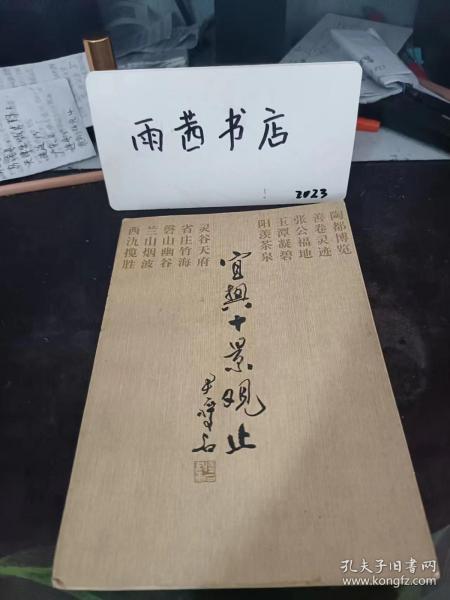 雨茜书店
2023
陶都博览
善卷灵迹
张公福地
玉潭凝碧
阳羡茶泉
灵谷天府
省庄竹海
磬山幽谷
兰山烟波
西氿揽胜
宜興十景观止
孔夫子旧书网
www.kongfz.com